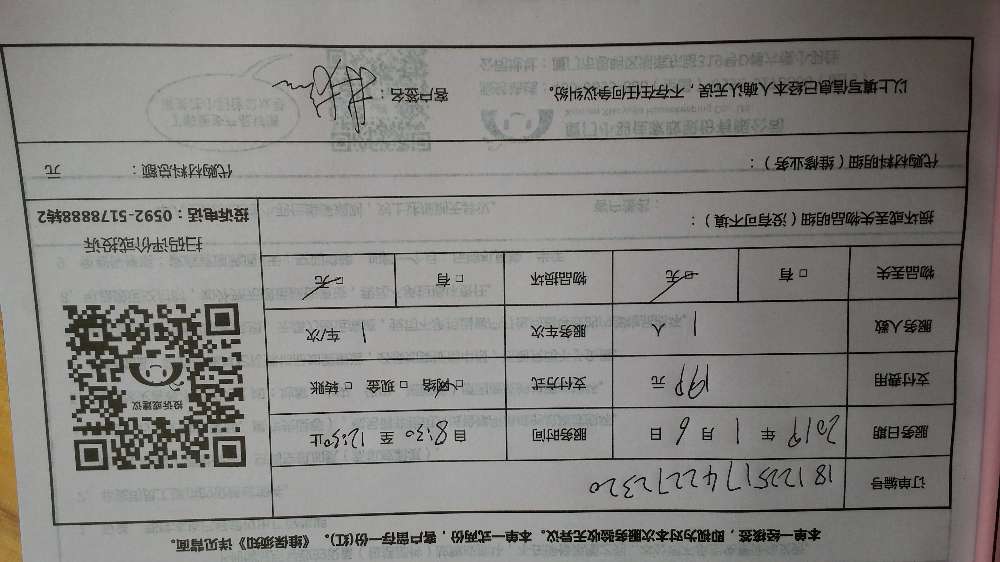 本单一经接签，即视为对本次服务验收无异议。本单一式两份，客户留存一份(红)。《维保须知》详见背面。
订单编号 1812251742272320
服务日期 2019 年 1 月 6 日 服务时间 自 8:30 至 12:30 止
支付费用 199 元 支付方式 □ 网络 □ 现金 □ 转账
服务人数 1 人 服务车次 1 车/次
物品丢失 □ 有 □ 无 物品损坏 □ 有 □ 无
投诉或建议
扫码评价或投诉
投诉电话：0592-5178888转2
损坏或丢失物品明细（没有可不填）：
代购材料明细（维修业务）： 代购材料总额： 元
以上填写信息已经本人确认无误，不存在任何争议纠纷。 客户签名：